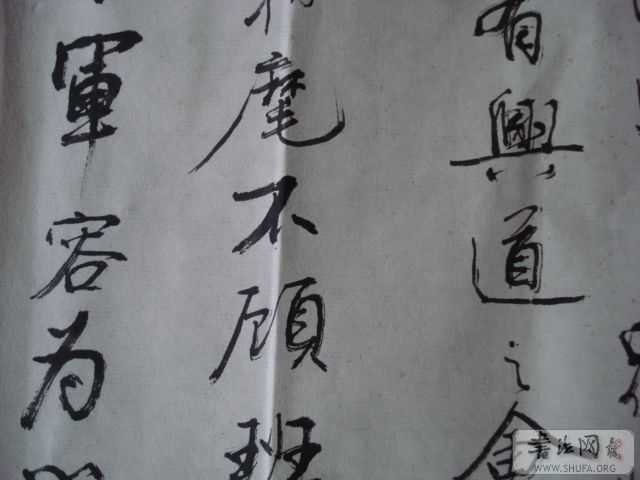 有興道之
麾不顧班
軍容为
書法网
WWW.SHUFA.ORG